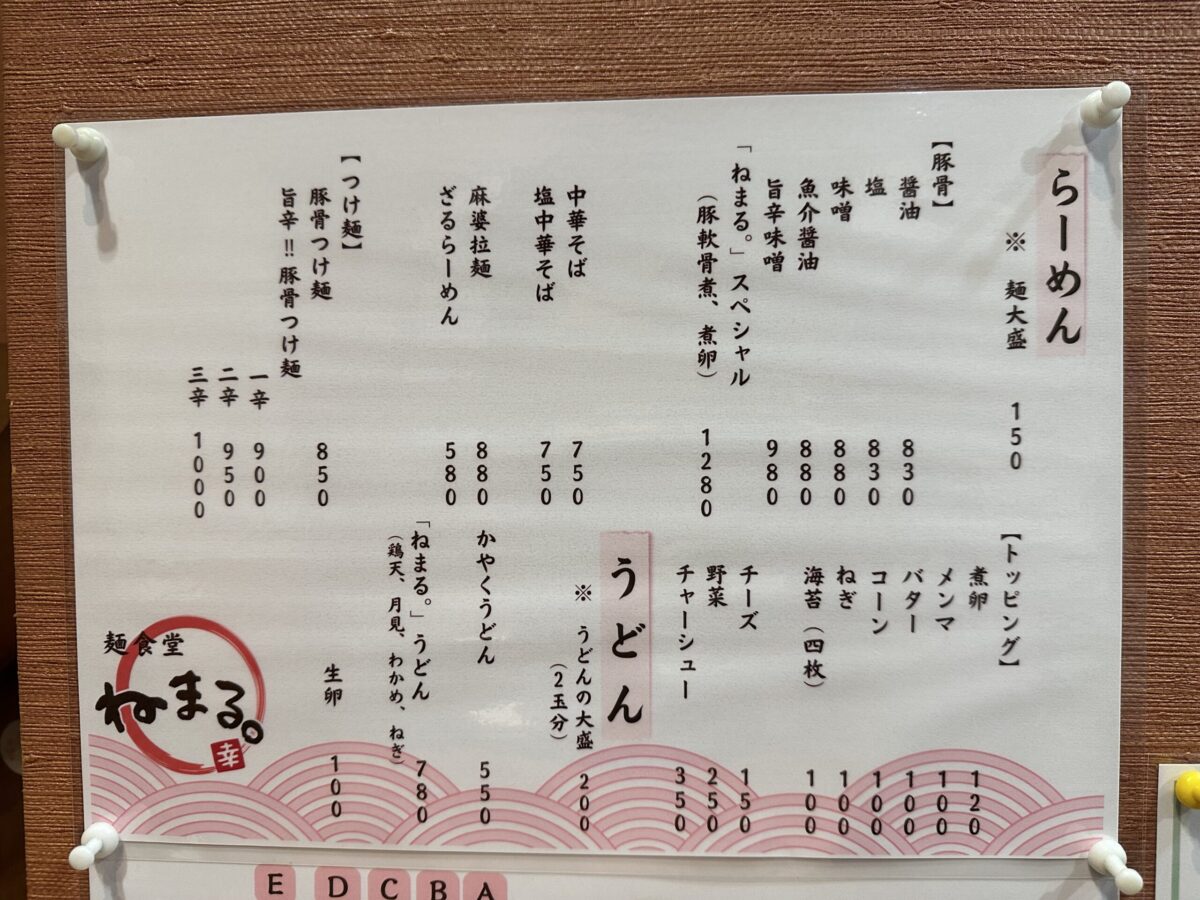 らーめん
※ 麺大盛 150
【豚骨】
醤油 830
塩 830
味噌 880
魚介醤油 880
旨辛味噌 980
「ねまる。」スペシャル
（豚軟骨煮、煮卵） 1280
中華そば 750
塩中華そば 750
麻婆拉麺 880
ざるらーめん 580
【つけ麺】
豚骨つけ麺 850
旨辛!!豚骨つけ麺
一辛 900
二辛 950
三辛 1000
【トッピング】
煮卵 120
メンマ 100
バター 100
コーン 100
ねぎ 100
海苔（四枚） 100
チーズ 150
野菜 250
チャーシュー 350
うどん
※ うどんの大盛 200
（2玉分）
かやくうどん 550
「ねまる。」うどん 780
（鶏天、月見、わかめ、ねぎ）
生卵 100
麺食堂
ねまる。
幸
E D C B A